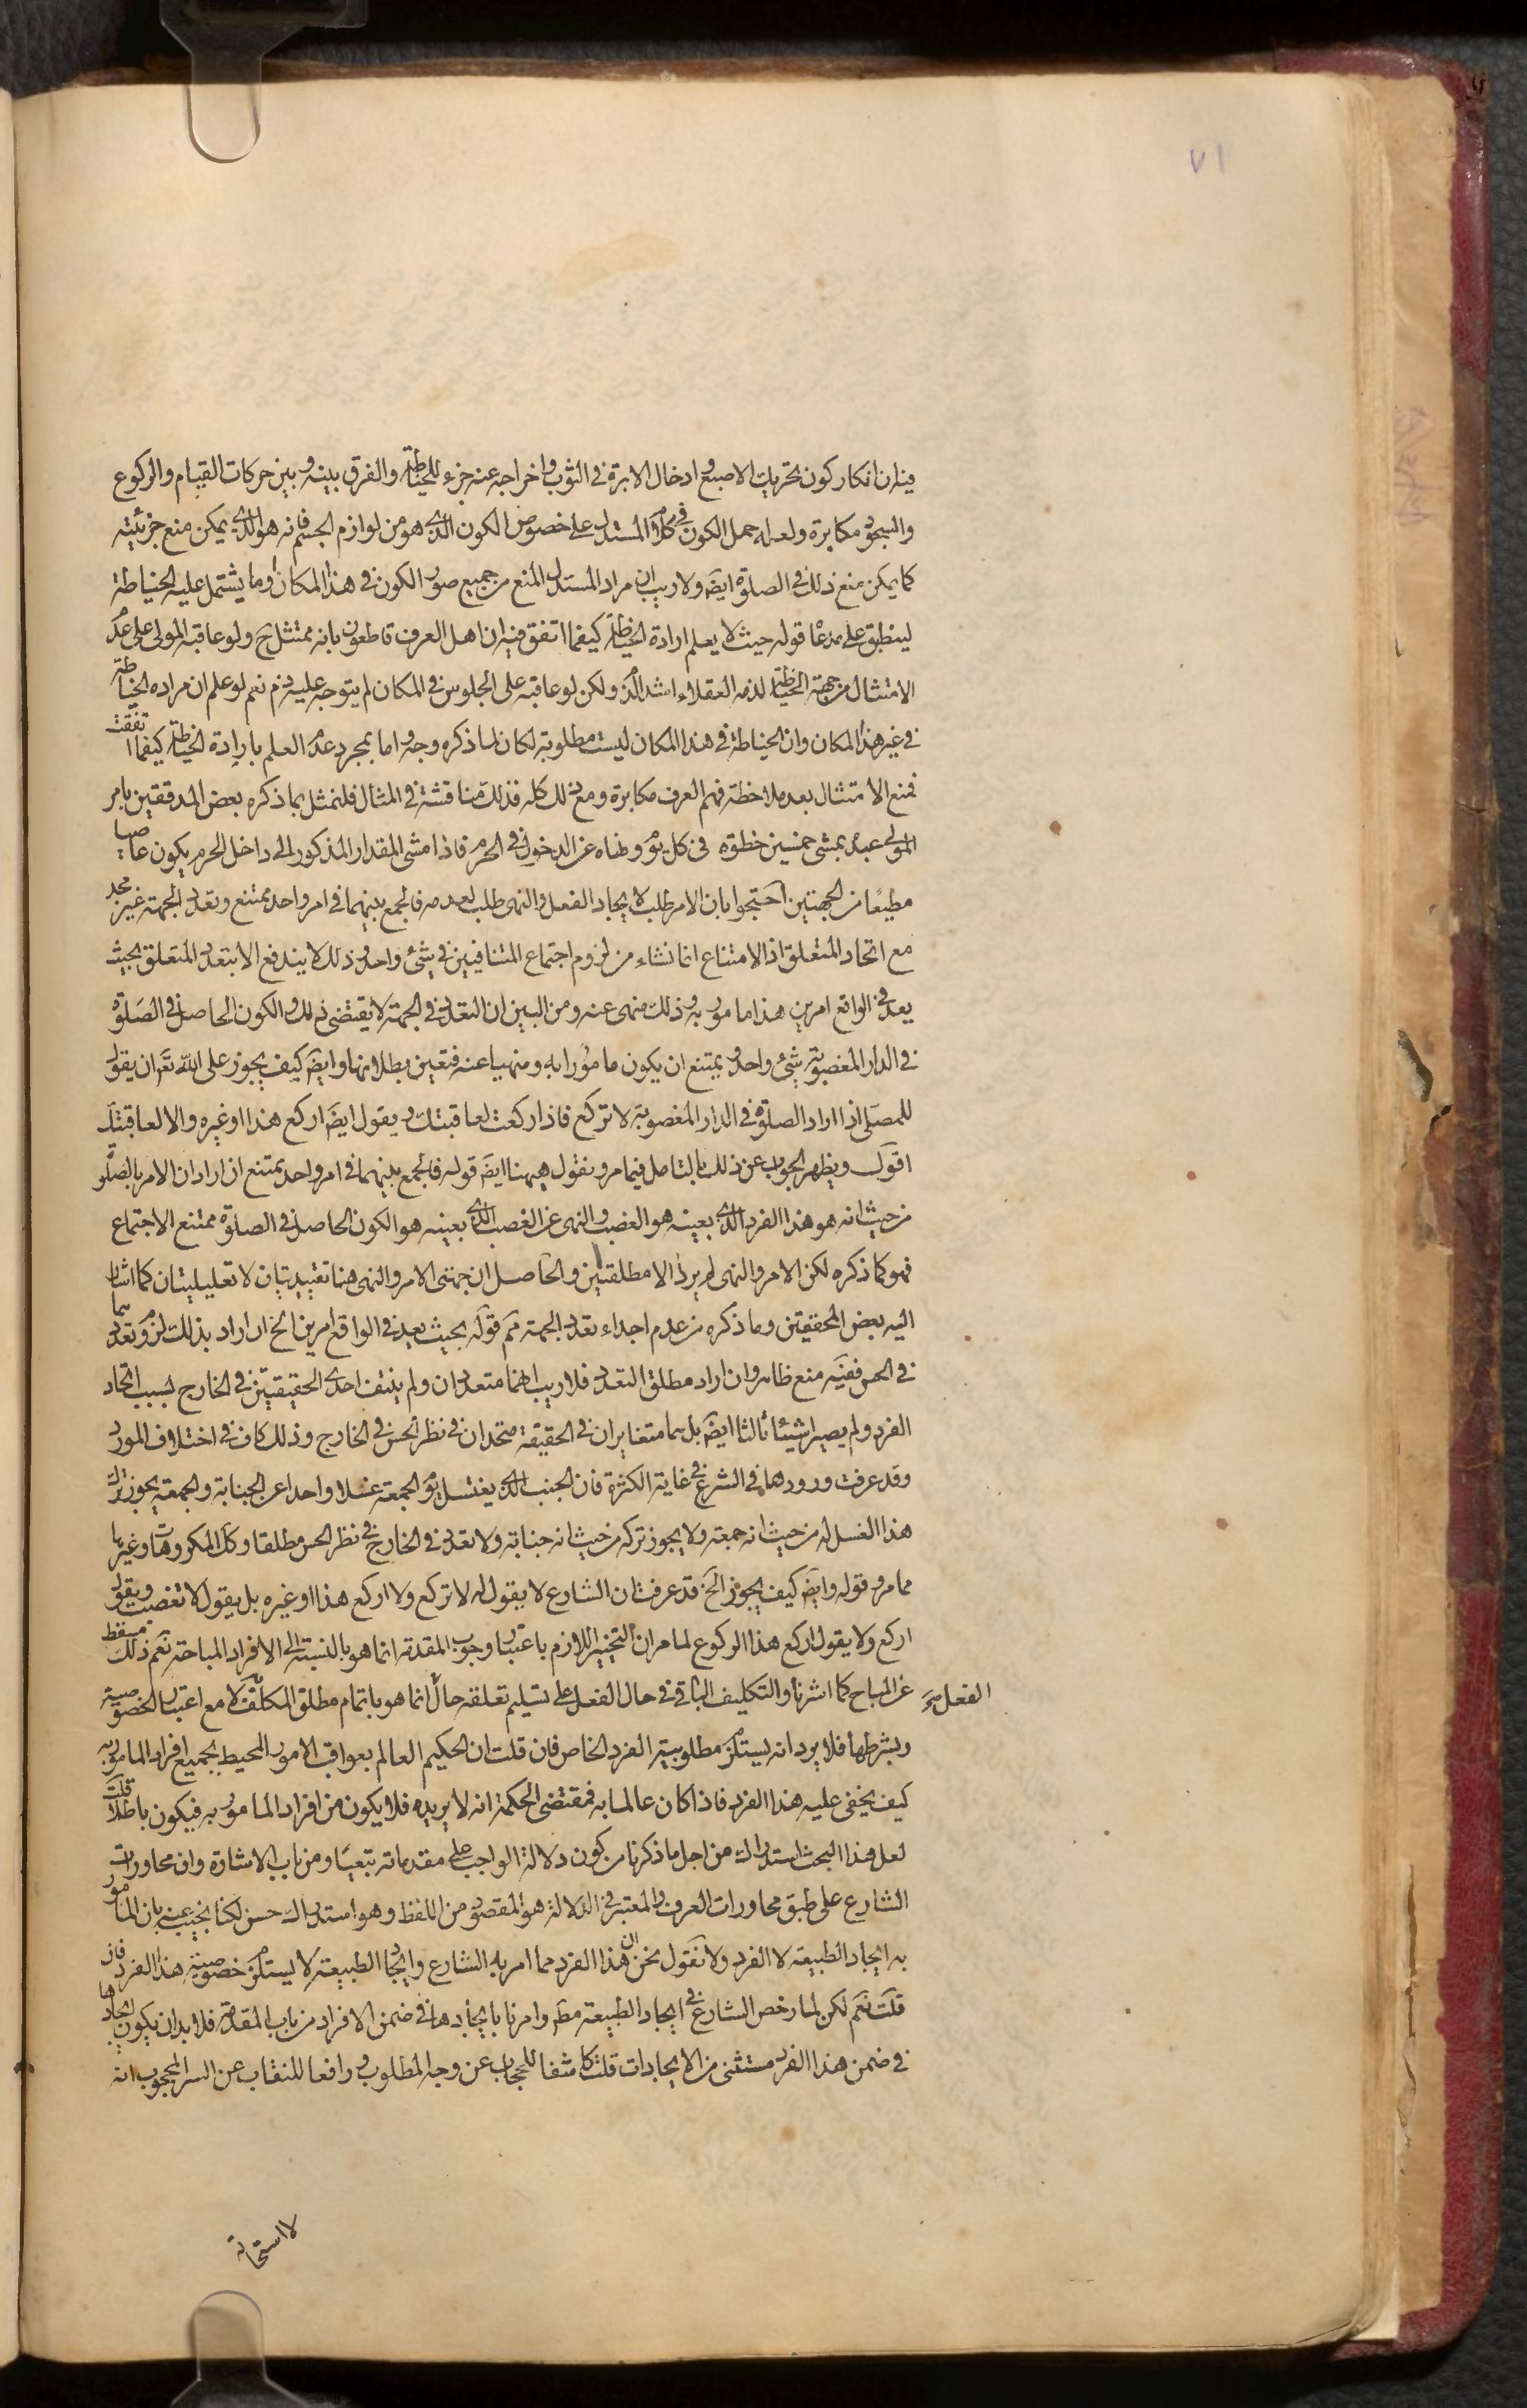 ٧١
فيه ان انكار كون تحريك الاصبع وادخال الابرة في الثوب واخراجه عنه جزء للخياطة والفرق بينه وبين حركات القيام والركوع
والسجود مكابرة ولعله حمل الكون في كلام المستدل على خصوص الكون الذى هو من لوازم الجسم فانه هو الذى يمكن منع جزئيته
كما يمكن منع ذلك في الصلوة ايضَ ولا ريب ان مراد المستدل المنع من جميع صور الكون في هذا المكان وما يشتمل عليه الخياطة
لينطبق على مدعا قوله حيث لا يعلم ارادة الخياطة كيفما اتفق فيه ان اهل العرف قاطعون بانه ممتثل ح ولو عاقبه المولى على عدم
الامتثال من جهة الخياطة لذمه العقلاء اشد الذم ولكن لو عاقبه على الجلوس في المكان لم يتوجه عليه ذم نعم لو علم ان مراده الخياطة
في غير هذا المكان وان الخياطة في هذا المكان ليست مطلوبة لكان لما ذكره وجه واما بمجرد عدم العلم بارادة الخياطة كيفما اتفقت
فمنع الامتثال بعد ملاحظة فهم العرف مكابرة ومع ذلك كله فذلك مناقشة في المثال فلنمثل بما ذكره بعض المدققين بامر
المولى عبده بمشى خمسين خطوة في كل يوم ونهاه عن الدخول في الحرم فاذا مشى المقدار المذكور الى داخل الحرم يكون عاصيا
مطيعًا من الجهتين احتجوا بان الامر طلب لايجاد الفعل والنهى طلب لعدمه فالجمع بينهما في امر واحد ممتنع وتعدد الجهة غير مجد
مع اتحاد المتعلق اذ الامتناع انما نشاء من لزوم اجتماع المتنافيين في شئ واحد وذلك لا يندفع الا بتعدد المتعلق بحيث
يعد في الواقع امرين هذا مامور به وذلك منهى عنه ومن البين ان التعدد في الجهة لا يقتضى ذلك والكون الحاصل في الصلوة
في الدار المغصوبة شئ واحد ويمتنع ان يكون مامورا به ومنهيا عنه فتعين بطلانها وايضَ كيف يجوز على الله تعَ ان يقول
للمصلى اذا اراد الصلوة في الدار المغصوبة لا تركع فاذا ركعت لعاقبتك ويقول ايضَ اركع هذا او غيره والا لعاقبتك
اقول ويظهر الجواب عن ذلك بالتامل فيما مر ونقول هيهنا ايضَ قوله فالجمع بينهما في امر واحد ممتنع ان اراد ان الامر بالصلوة
من حيث انه هو هذا الفرد الذى بعينه هو الغصب والنهى عن الغصب الذى بعينه هو الكون الحاصل في الصلوة ممتنع الاجتماع
فهو كما ذكره لكن الامر والنهى لم يردا الا مطلقين والحاصل ان جهتى الامر والنهى هنا تقييديتان لا تعليليتان كما اشار
اليه بعض المحققين وما ذكره من عدم اجداء تعدد الجهة ثم قوله بحيث يعد في الواقع امرين الخ ان اراد بذلك لزوم تعددهما
في الحس ففيه منع ظاهر وان اراد مطلق التعدد فلا ريب انهما متعددان ولم ينتف احدى الحقيقتين في الخارج بسبب اتحاد
الفرد ولم يصيرا شيئا ثالثا ايضَ بل هما متغايران في الحقيقة متحدان في نظر الحس في الخارج وذلك كاف في اختلاف المورد
وقد عرفت ورودها في الشرع في غاية الكثرة فان الجنب الذى يغتسل يوم الجمعة غسلا واحدا عن الجنابة والجمعة يجوز ترك
هذا الغسل له من حيث انه جمعة ولا يجوز تركه من حيث انه جنابة ولا تعدد في الخارج في نظر الحس مطلقا وكك المكروهات وغيرها
مما مر وقوله وايضَ كيف يجوز الخ قد عرفت ان الشارع لا يقول له لا تركع ولا اركع هذا او غيره بل يقول لا تغصب ويقول
اركع ولا يقول اركع هذا الركوع لما مر ان التخيير اللازم باعتبار وجوب المقدمة انما هو بالنسبة الى الافراد المباحة نعم ذلك مسقط
عن المباح كما اشرنا والتكليف الباقى في حال الفعل على تسليم تعلقه حال انما هو باتمام مطلق المكلف لا مع اعتبار الخصوصية
الفعل
وبشرطها فلا يرد انه يستلزم مطلوبية الفرد الخاص فان قلت ان الحكيم العالم بعواقب الامور المحيط بجميع افراد المامور به
كيف يخفى عليه هذا الفرد فاذا كان عالما به فمقتضى الحكمة انه لا يريده فلا يكون من افراد المامور به فيكون باطلا قلت
لعل هذا البحث استدراك من اجل ما ذكرنا من كون دلالة الواجب على مقدماته تبعيا ومن باب الاشارة وان محاورات
الشارع على طبق محاورات العرف والمعتبر في الدلالة هو المقصود من اللفظ وهو استدراك حسن لكنا نجيب عنه بان المامور
به ايجاد الطبيعة لا الفرد ولا نقول نحن ان هذا الفرد مما امر به الشارع وايجاد الطبيعة لا يستلزم خصوصية هذا الفرد فان
قلت نعم لكن لما رخص الشارع في ايجاد الطبيعة مطَ وامرنا بايجادها في ضمن الافراد من باب المقدمة فلا بد ان يكون ايجادها
في ضمن هذا الفرد مستثنى من الايجادات قلت كاشفا للحجاب عن وجه المطلوب ورافعا للنقاب عن السر المحجوب انه
لا استحالة